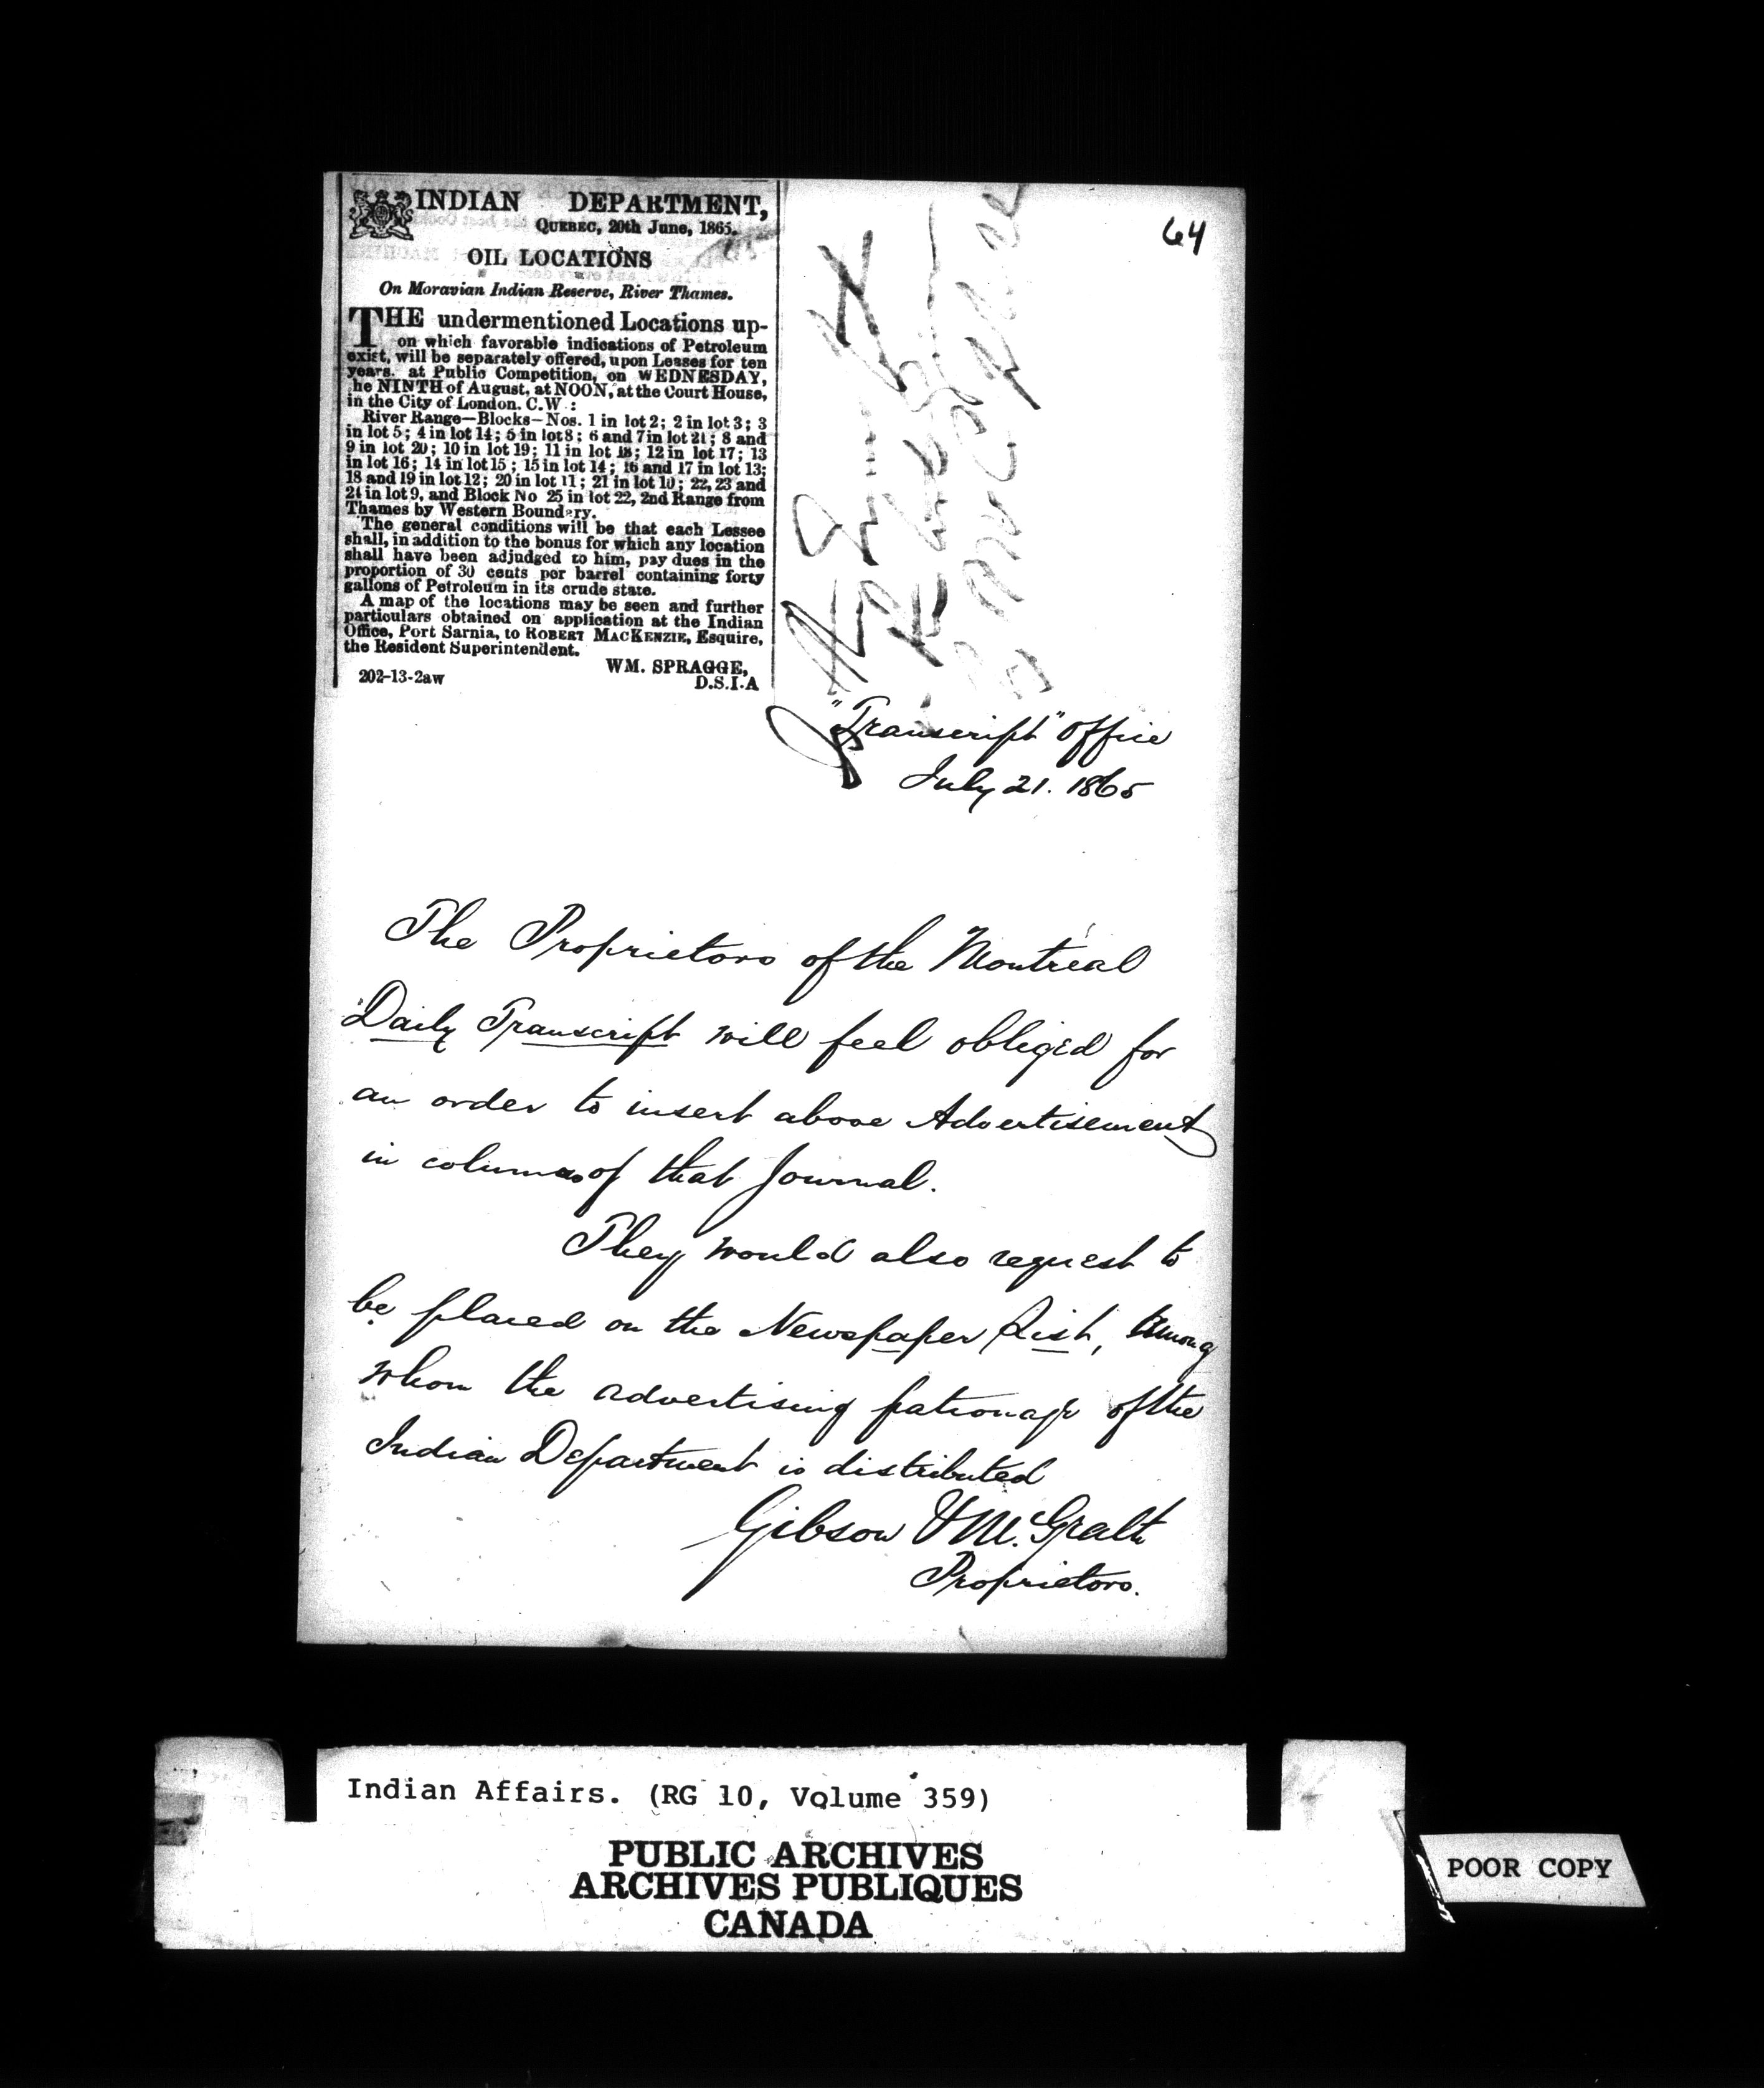 64
INDIAN DEPARTMENT,
QUEBEC, 20th June, 1865.
OIL LOCATIONS
On Moravian Indian Reserve, River Thames.
THE undermentioned Locations up-
on which favorable indications of Petroleum
exist, will be separately offered, upon Leases for ten
years. at Public Competition, on WEDNESDAY,
he NINTH of August, at NOON, at the Court House,
in the City of London. C.W.:
River Range—Blocks—Nos. 1 in lot 2; 2 in lot 3; 3
in lot 5; 4 in lot 14; 5 in lot 8; 6 and 7 in lot 21; 8 and
9 in lot 20; 10 in lot 19; 11 in lot 18; 12 in lot 17; 13
in lot 16; 14 in lot 15; 15 in lot 14; 16 and 17 in lot 13;
18 and 19 in lot 12; 20 in lot 11; 21 in lot 10; 22, 23 and
24 in lot 9, and Block No 25 in lot 22, 2nd Range from
Thames by Western Boundary.
The general conditions will be that each Lessee
shall, in addition to the bonus for which any location
shall have been adjudged to him, pay dues in the
proportion of 30 cents per barrel containing forty
gallons of Petroleum in its crude state.
A map of the locations may be seen and further
particulars obtained on application at the Indian
Office, Port Sarnia, to ROBERT MACKENZIE, Esquire,
the Resident Superintendent.
WM. SPRAGGE,
D.S.I.A
202-13-2aw
"Transcript" Office
July 21. 1865
The Proprietors of the Montreal
Daily Transcript will feel obliged for
an order to insert above Advertisement
in columns of that Journal.
They would also request to
be placed on the Newspaper List, among
whom the advertising patronage of the
Indian Department is distributed
Gibson & McGrath
Proprietors.
Indian Affairs. (RG 10, Volume 359)
PUBLIC ARCHIVES
ARCHIVES PUBLIQUES
CANADA
POOR COPY